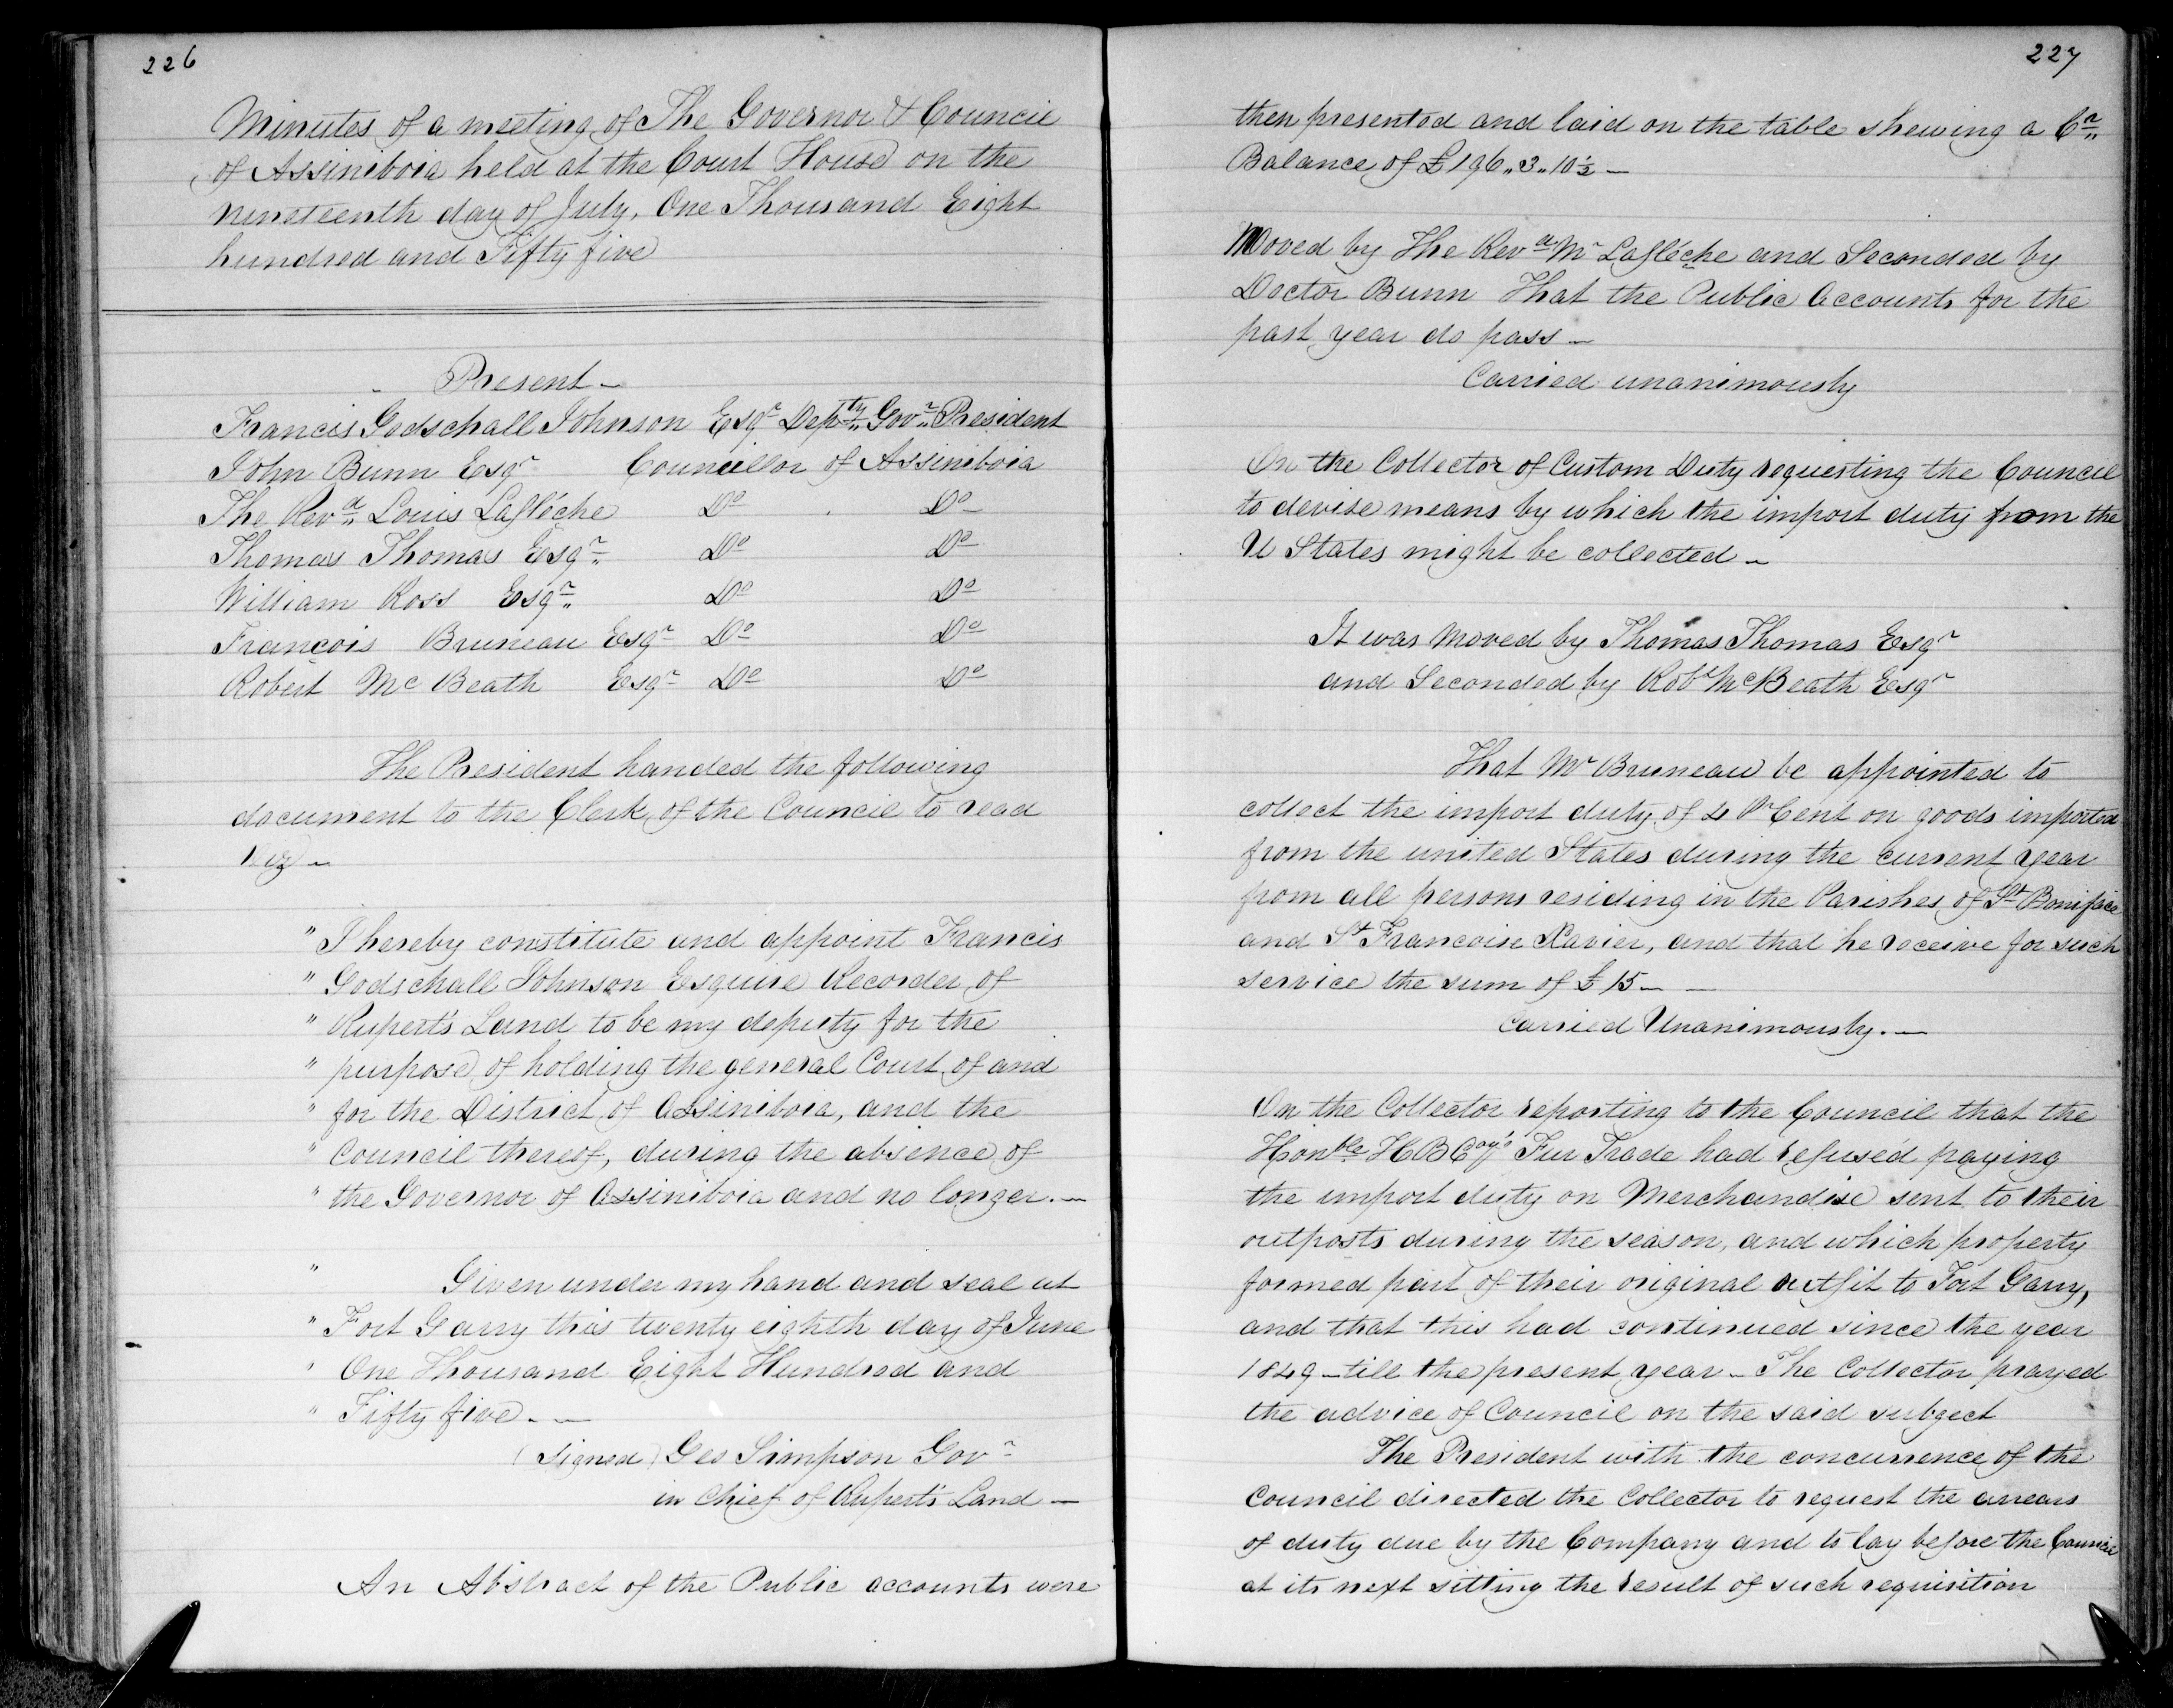 226
Minutes of a meeting of The Governor & Council
of Assiniboia held at the Court House on the
nineteenth day of July, One Thousand Eight
hundred and Fifty five
- Present -
Francis Godschall Johnson Esqr Depty Govr President
John Bunn Esqr Councillor of Assiniboia
The Revd Louis Lafléche Do Do
Thomas Thomas Esqr Do Do
William Ross Esqr Do Do
François Bruneau Esqr Do Do
Robert McBeath Esqr Do Do
The President handed the following
document to the Clerk of the Council to read
Viz -
" I hereby constitute and appoint Francis
" Godschall Johnson Esquire Recorder of
" Rupert's Land to be my deputy for the
" purpose of holding the general Court of and
" for the District of Assiniboia, and the
" Council thereof, during the absence of
" the Governor of Assiniboia and no longer. -
" Given under my hand and seal at
" Fort Garry this twenty eighth day of June
" One Thousand Eight Hundred and
" Fifty five. -
(Signed) Geo Simpson Govr
in Chief of Rupert's Land -
An Abstract of the Public accounts were
227
then presented and laid on the table shewing a Cr
Balance of £196"3"10½ -
Moved by The Revd Mr Lafléche and Seconded by
Doctor Bunn That the Public Accounts for the
past year do pass -
Carried unanimously
On the Collector of Custom Duty requesting the Council
to devise means by which the import duty from the
U States might be collected -
It was moved by Thomas Thomas Esqr
and Seconded by Robt McBeath Esqr
That Mr Bruneau be appointed to
collect the import duty of 4 Pr Cent on goods imported
from the united States during the current year
from all persons residing in the Parishes of St Boniface
and St Francoise Xavier, and that he receive for such
service the sum of £15 - -
Carried Unanimously. -
On the Collector reporting to the Council that the
Honble HBCoy's Fur Trade had refused paying
the import duty on Merchandise sent to their
outposts during the season, and which property
formed part of their original outfit to Fort Garry,
and that this had continued since the year
1849 - till the present year - The Collector prayed
the advice of Council on the said subject
The President with the concurrence of the
Council directed the Collector to request the arrears
of duty due by the Company and to lay before the Council
at its next sitting the result of such requisition